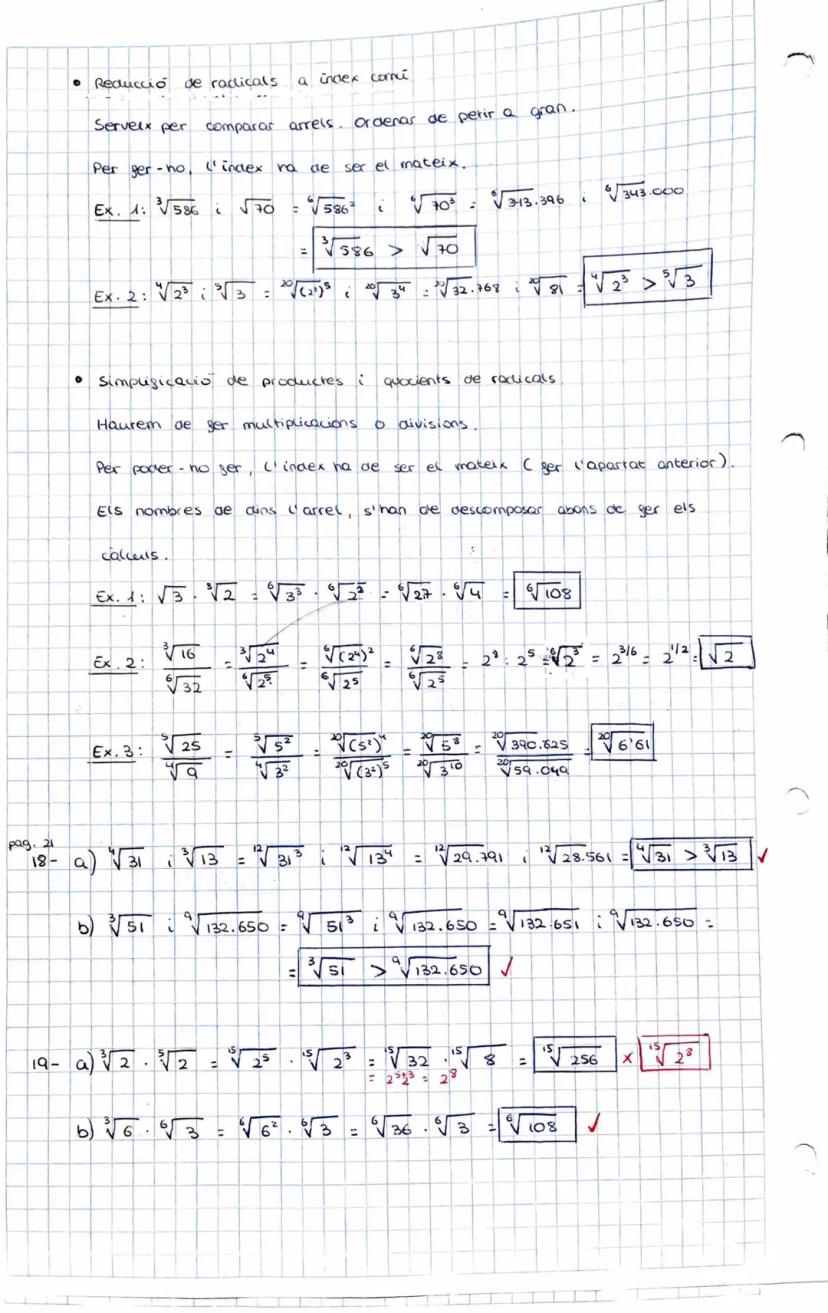 • Reducció de radicals a índex comú
Serveix per comparar arrels. Ordenar de petit a gran.
Per fer-ho, l'índex ha de ser el mateix.
Ex. 1: ∛586 i √70 = ⁶√586² i ⁶√70³ = ⁶√343.396 i ⁶√343.000
= ∛586 > √70
Ex. 2: ⁴√2³ i ⁵√3 = ²⁰√(2³)⁵ i ²⁰√3⁴ = ²⁰√32.768 i ²⁰√81 = ⁴√2³ > ⁵√3
• Simplificació de productes i quocients de radicals.
Haurem de fer multiplicacions o divisions.
Per poder-ho fer, l'índex ha de ser el mateix (fer l'apartat anterior).
Els nombres de dins l'arrel, s'han de descomposar abans de fer els
càlculs.
Ex. 1: √3 · ∛2 = ⁶√3³ · ⁶√2² = ⁶√27 · ⁶√4 = ⁶√108
Ex. 2: ∛16 / ⁶√32 = ∛2⁴ / ⁶√2⁵ = ⁶√(2⁴)² / ⁶√2⁵ = ⁶√2⁸ / ⁶√2⁵ = 2⁸ : 2⁵ = ⁶√2³ = 2^3/6 = 2^1/2 = √2
Ex. 3: ⁵√25 / ⁴√9 = ⁵√5² / ⁴√3² = ²⁰√(5²)⁴ / ²⁰√(3²)⁵ = ²⁰√5⁸ / ²⁰√3¹⁰ = ²⁰√390.625 / ²⁰√59.049 = ²⁰√6'61
pag. 21
18- a) ⁴√31 i ∛13 = ¹²√31³ i ¹²√13⁴ = ¹²√29.791 i ¹²√28.561 = ⁴√31 > ∛13 ✓
b) ∛51 i ⁹√132.650 = ⁹√51³ i ⁹√132.650 = ⁹√132.651 i ⁹√132.650 =
= ∛51 > ⁹√132.650 ✓
19- a) ∛2 · ⁵√2 = ¹⁵√2⁵ · ¹⁵√2³ = ¹⁵√32 · ¹⁵√8 = ¹⁵√256 × ¹⁵√2⁸
= 2⁵⁺³ = 2⁸
b) ∛6 · ⁶√3 = ⁶√6² · ⁶√3 = ⁶√36 · ⁶√3 = ⁶√108 ✓